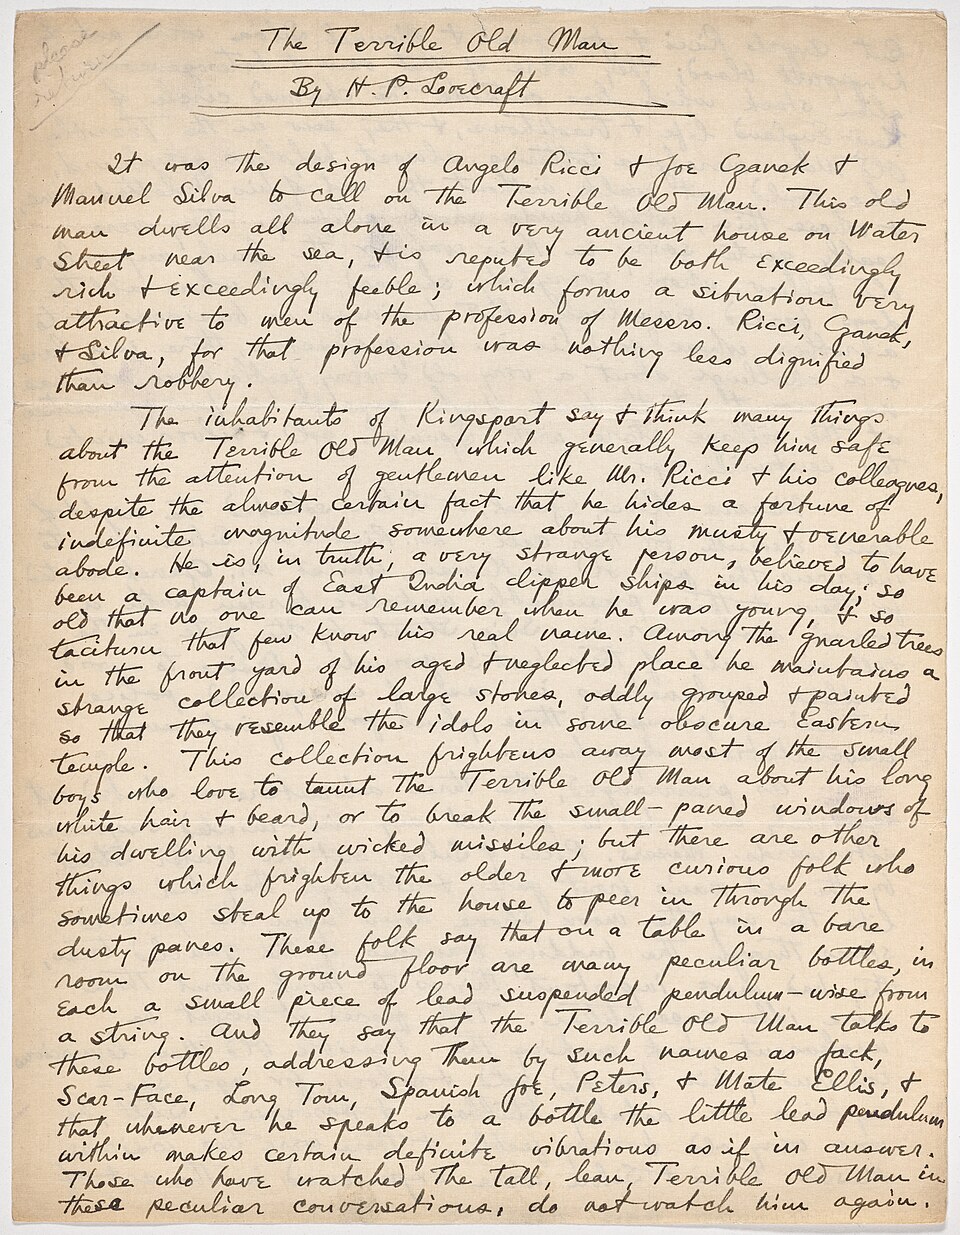 please
return
The Terrible Old Man
By H. P. Lovecraft
It was the design of Angelo Ricci & Joe Czanek &
Manuel Silva to call on the Terrible Old Man. This old
man dwells all alone in a very ancient house on Water
Street near the sea, & is reputed to be both exceedingly
rich & exceedingly feeble; which forms a situation very
attractive to men of the profession of Messrs. Ricci, Czanek,
& Silva, for that profession was nothing less dignified
than robbery.
The inhabitants of Kingsport say & think many things
about the Terrible Old Man which generally keep him safe
from the attention of gentlemen like Mr. Ricci & his colleagues,
despite the almost certain fact that he hides a fortune of
indefinite magnitude somewhere about his musty & venerable
abode. He is, in truth, a very strange person, believed to have
been a captain of East India clipper ships in his day; so
old that no one can remember when he was young, & so
taciturn that few know his real name. Among the gnarled trees
in the front yard of his aged & neglected place he maintains a
strange collection of large stones, oddly grouped & painted
so that they resemble the idols in some obscure Eastern
temple. This collection frightens away most of the small
boys who love to taunt the Terrible Old Man about his long
white hair & beard, or to break the small-paned windows of
his dwelling with wicked missiles; but there are other
things which frighten the older & more curious folk who
sometimes steal up to the house to peer in through the
dusty panes. These folk say that on a table in a bare
room on the ground floor are many peculiar bottles, in
each a small piece of lead suspended pendulum-wise from
a string. And they say that the Terrible Old Man talks to
these bottles, addressing them by such names as Jack,
Scar-Face, Long Tom, Spanish Joe, Peters, & Mate Ellis, &
that whenever he speaks to a bottle the little lead pendulum
within makes certain definite vibrations as if in answer.
Those who have watched the tall, lean, Terrible Old Man in
these peculiar conversations, do not watch him again.